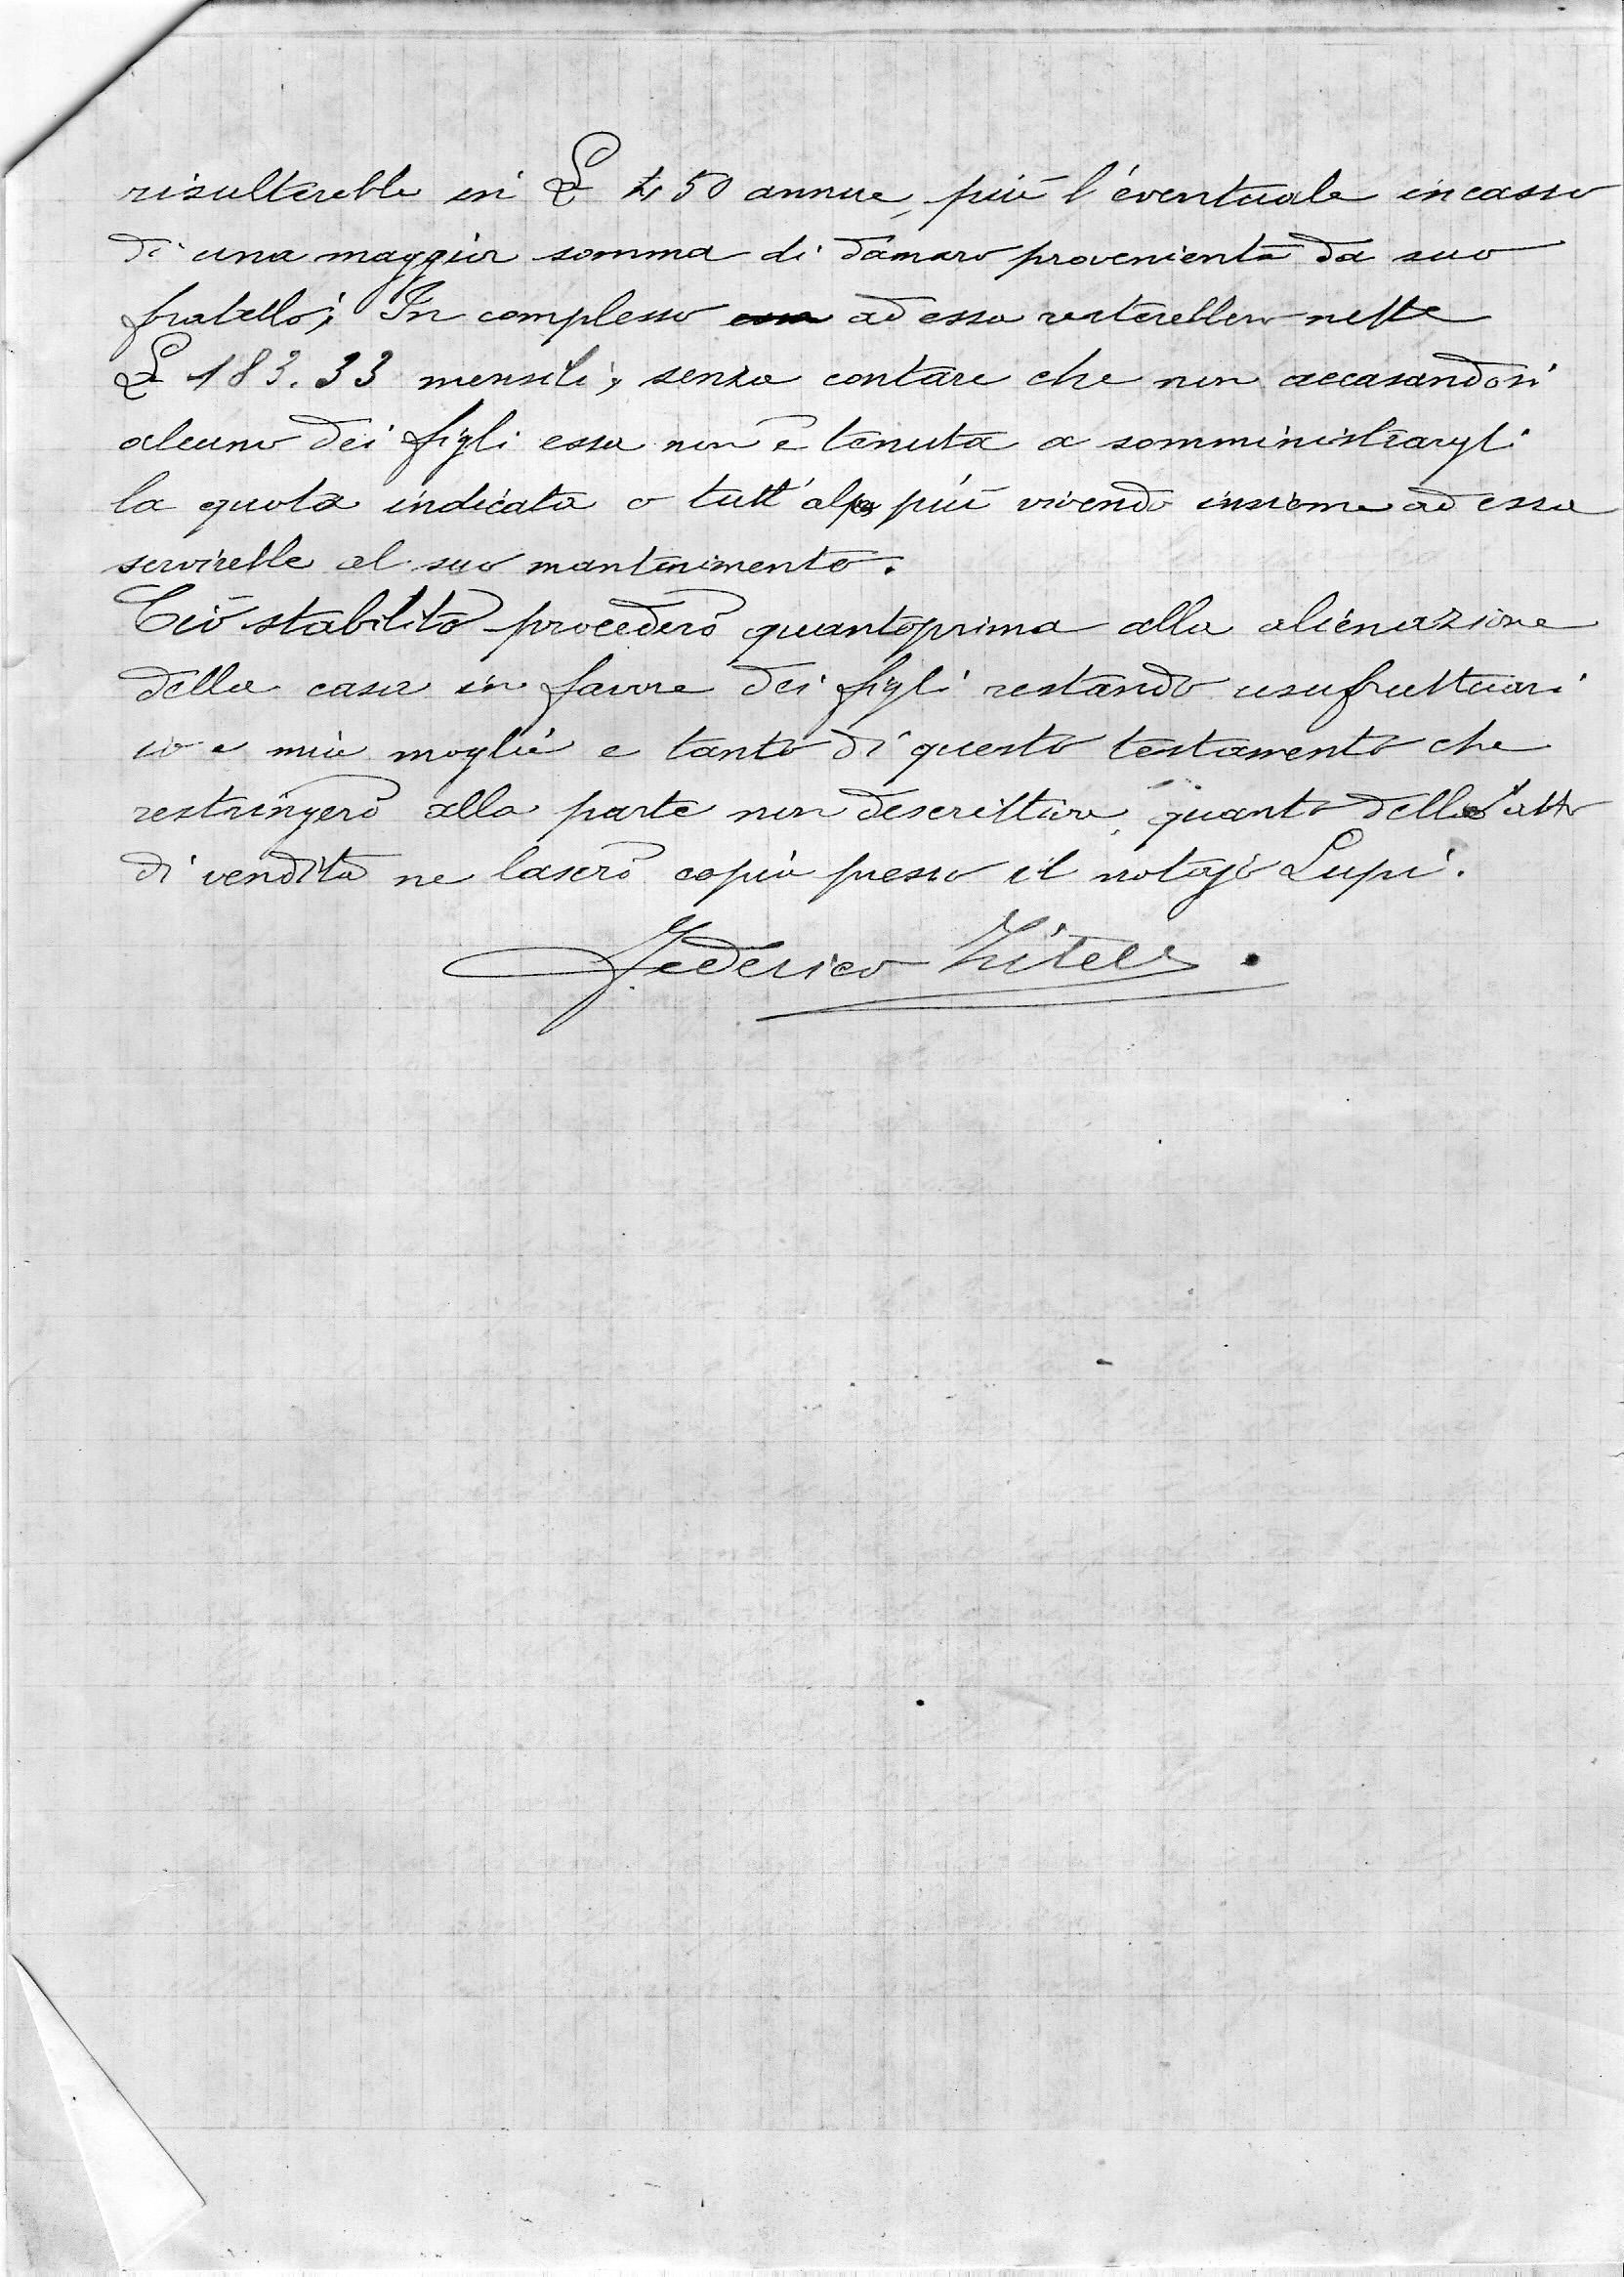 risulterebbe in £ 450 annue, più l'eventuale incasso
di una maggior somma di danaro proveniente da suo
fratello; In complesso ad essa resterebbero nette
£ 183.33 mensili, senza contare che non accasandosi
alcuno dei figli essa non è tenuta a somministrargli
la quota indicata o tutt'al più vivendo insieme ad essa
servirebbe al suo mantenimento.
Ciò stabilito procederò quantoprima alla alienazione
della casa in favore dei figli restando usufruttuari
io e mia moglie e tanto di questo testamento che
restringerò alla parte non descrittiva, quanto dell'atto
di vendita ne lascerò copia presso il notajo Lupi.
Federico